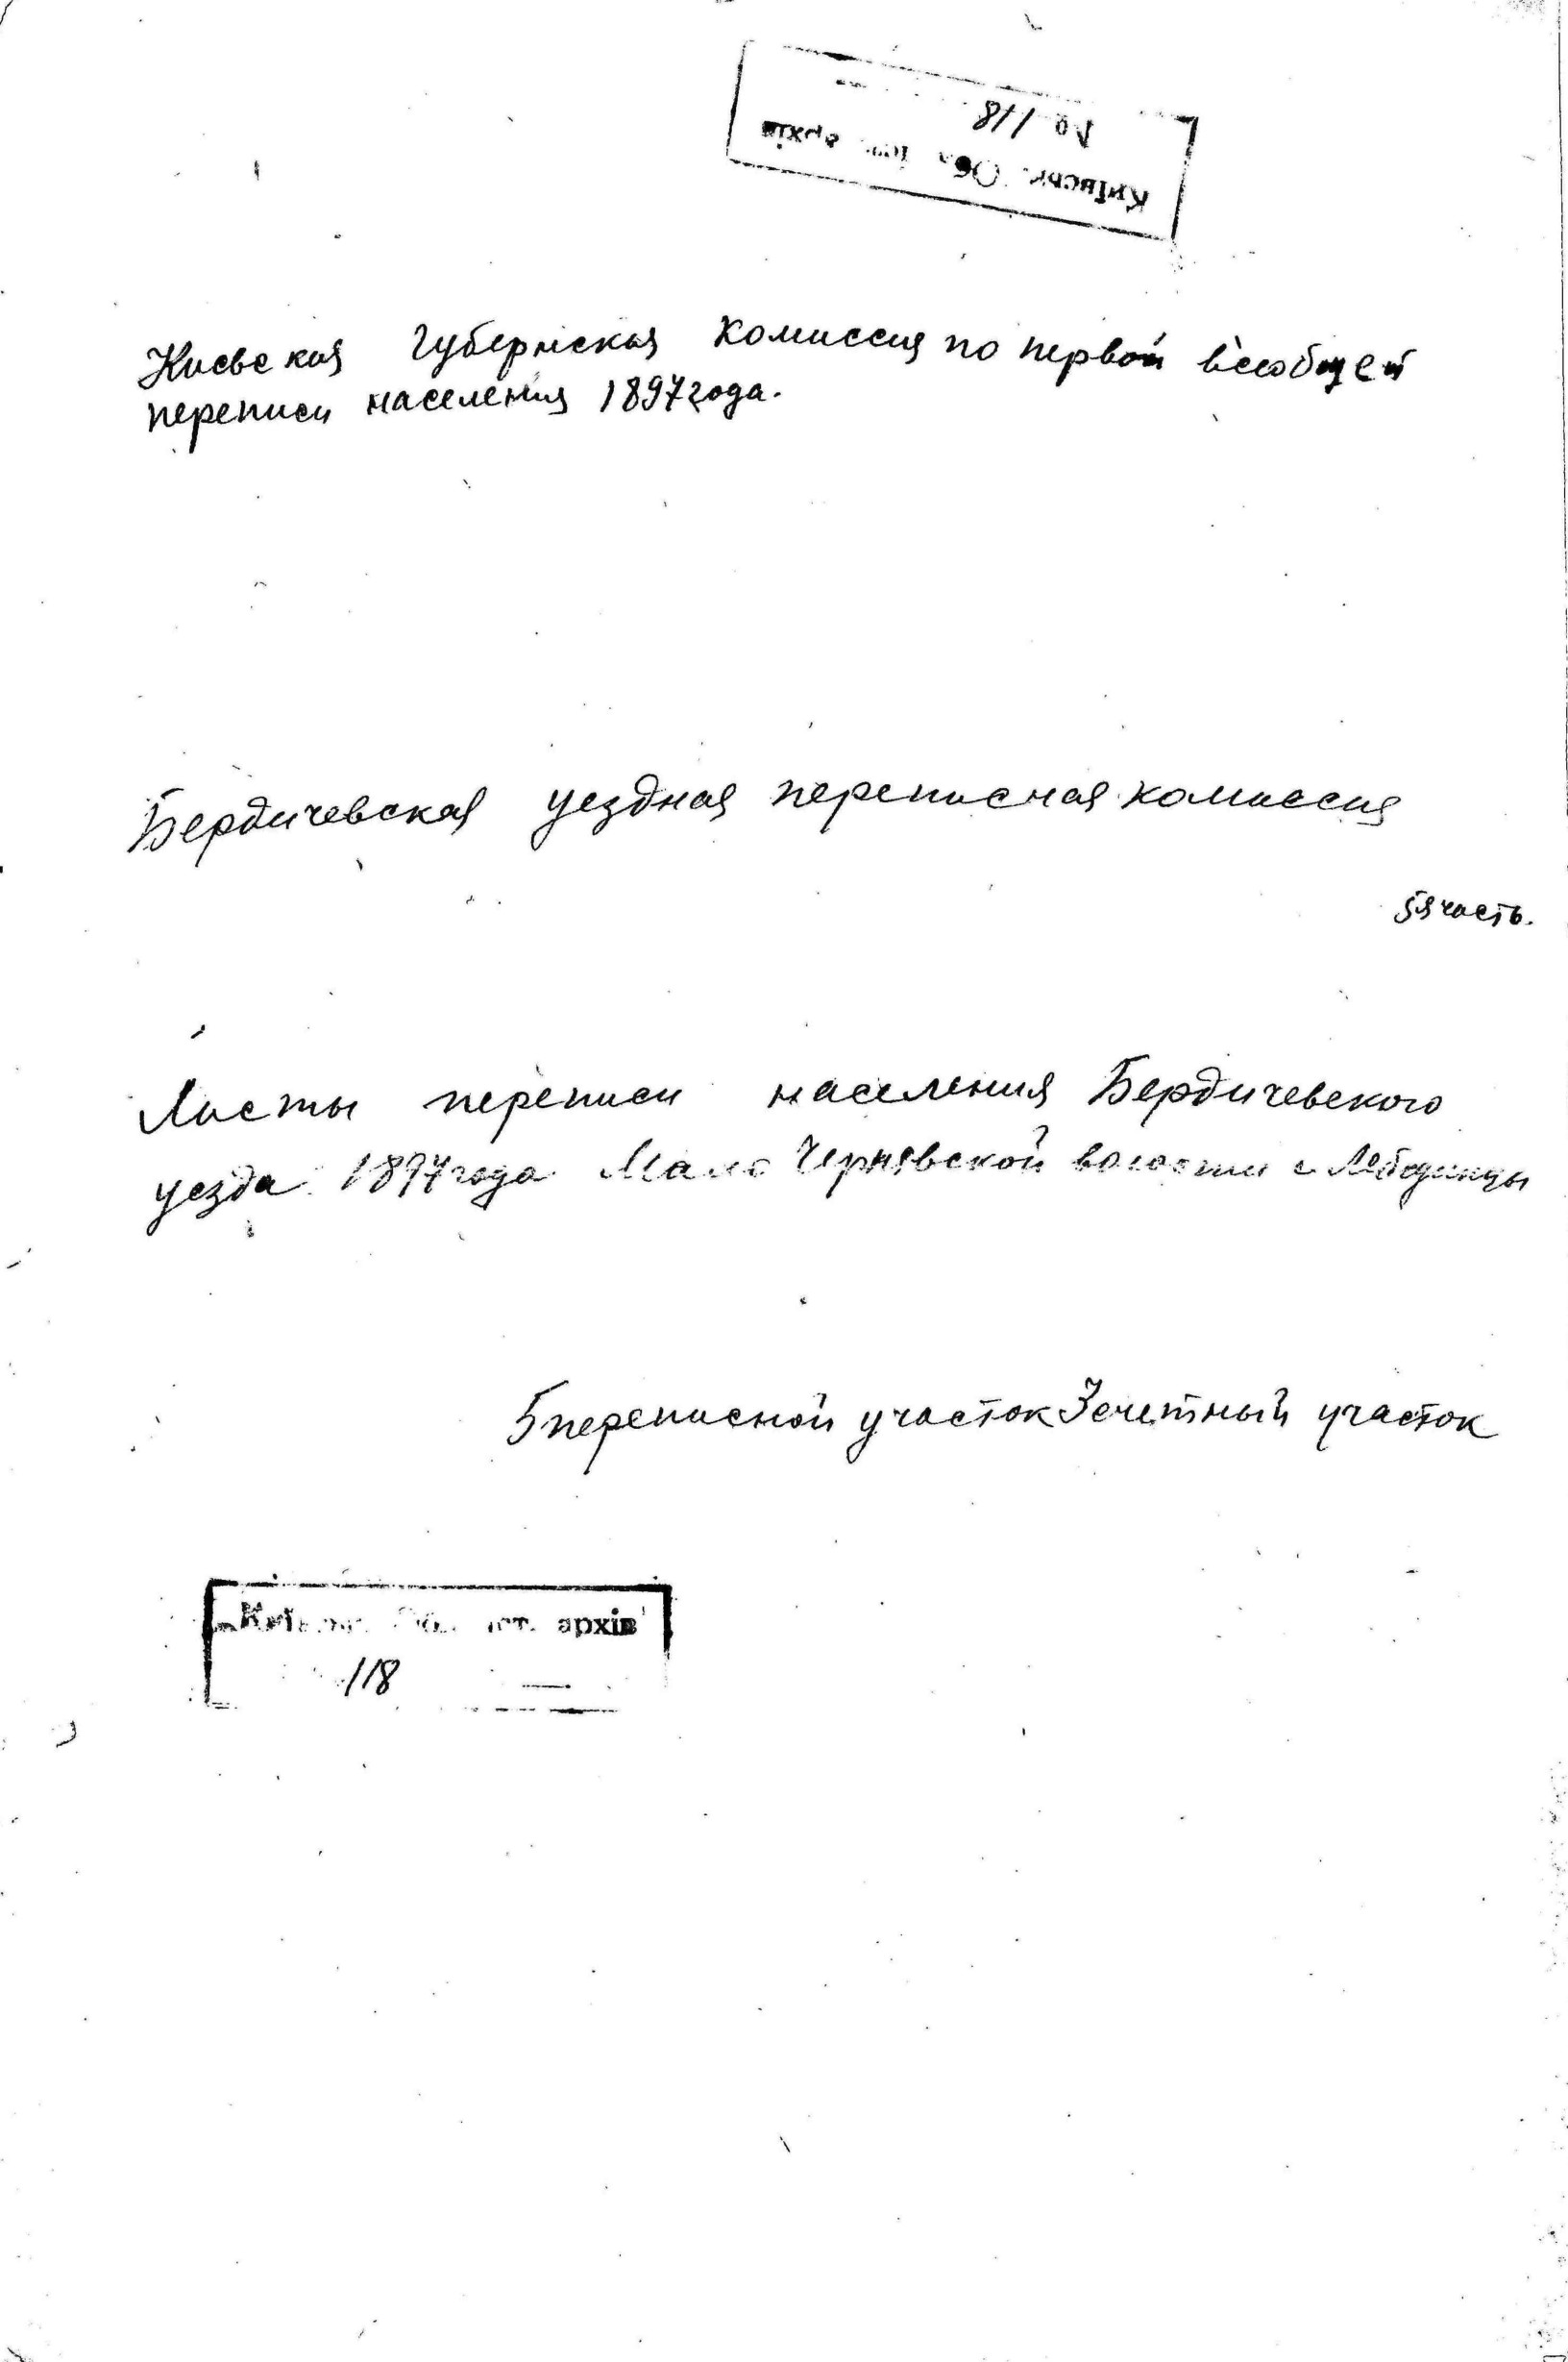 Київськ. Обл. іст. архів
№ 118
Киевская Губернская Комиссия по первой всеобщей
переписи населения 1897 года.
Бердичевская уездная переписная комиссия
5я часть.
Листы переписи населения Бердичевского
уезда 1897 года Мало Чернявской волости с Лебединцы
5 переписной участок 3 счетный участок
Київськ. Обл. іст. архів
118